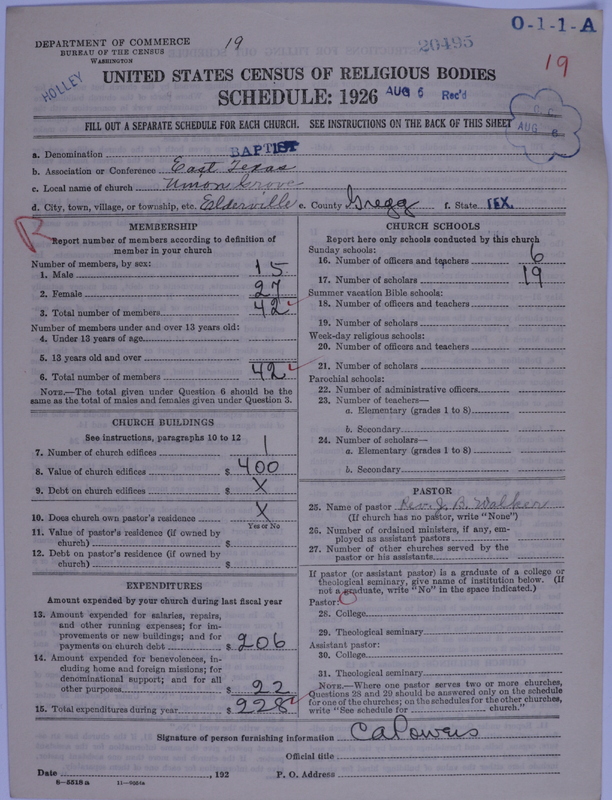 O-1-1-A
DEPARTMENT OF COMMERCE
BUREAU OF THE CENSUS
WASHINGTON
19
20495
19
HOLLEY
UNITED STATES CENSUS OF RELIGIOUS BODIES
SCHEDULE: 1926 AUG 6 Rec'd
AUG 6
FILL OUT A SEPARATE SCHEDULE FOR EACH CHURCH. SEE INSTRUCTIONS ON THE BACK OF THIS SHEET
a. Denomination BAPTIST
b. Association or Conference East Texas
c. Local name of church Union Grove
d. City, town, village, or township, etc. Elderville e. County Gregg f. State TEX.
MEMBERSHIP
Report number of members according to definition of
member in your church
Number of members, by sex:
1. Male 15
2. Female 27
3. Total number of members 42
Number of members under and over 13 years old:
4. Under 13 years of age
5. 13 years old and over
6. Total number of members 42
NOTE.—The total given under Question 6 should be the
same as the total of males and females given under Question 3.
CHURCH BUILDINGS
See instructions, paragraphs 10 to 12
7. Number of church edifices 1
8. Value of church edifices $ 400
9. Debt on church edifices $ X
10. Does church own pastor's residence X
Yes or No
11. Value of pastor's residence (if owned by
church) $
12. Debt on pastor's residence (if owned by
church) $
EXPENDITURES
Amount expended by your church during last fiscal year
13. Amount expended for salaries, repairs,
and other running expenses; for im-
provements or new buildings; and for
payments on church debt $ 206
14. Amount expended for benevolences, in-
cluding home and foreign missions; for
denominational support; and for all
other purposes $ 22
15. Total expenditures during year $ 228
CHURCH SCHOOLS
Report here only schools conducted by this church
Sunday schools:
16. Number of officers and teachers 6
17. Number of scholars 19
Summer vacation Bible schools:
18. Number of officers and teachers
19. Number of scholars
Week-day religious schools:
20. Number of officers and teachers
21. Number of scholars
Parochial schools:
22. Number of administrative officers
23. Number of teachers—
a. Elementary (grades 1 to 8)
b. Secondary
24. Number of scholars—
a. Elementary (grades 1 to 8)
b. Secondary
PASTOR
25. Name of pastor Rev. J. B. Walker
(If church has no pastor, write "None")
26. Number of ordained ministers, if any, em-
ployed as assistant pastors
27. Number of other churches served by the
pastor or his assistants
If pastor (or assistant pastor) is a graduate of a college or
theological seminary, give name of institution below. (If
not a graduate, write "No" in the space indicated.)
Pastor:
28. College
29. Theological seminary
Assistant pastor:
30. College
31. Theological seminary
NOTE.—Where one pastor serves two or more churches,
Questions 28 and 29 should be answered only on the schedule
for one of the churches; on the schedules for the other churches,
write "See schedule for church."
Signature of person furnishing information C A Powers
Official title
Date , 192 P. O. Address
8—5518 a 11—9024a